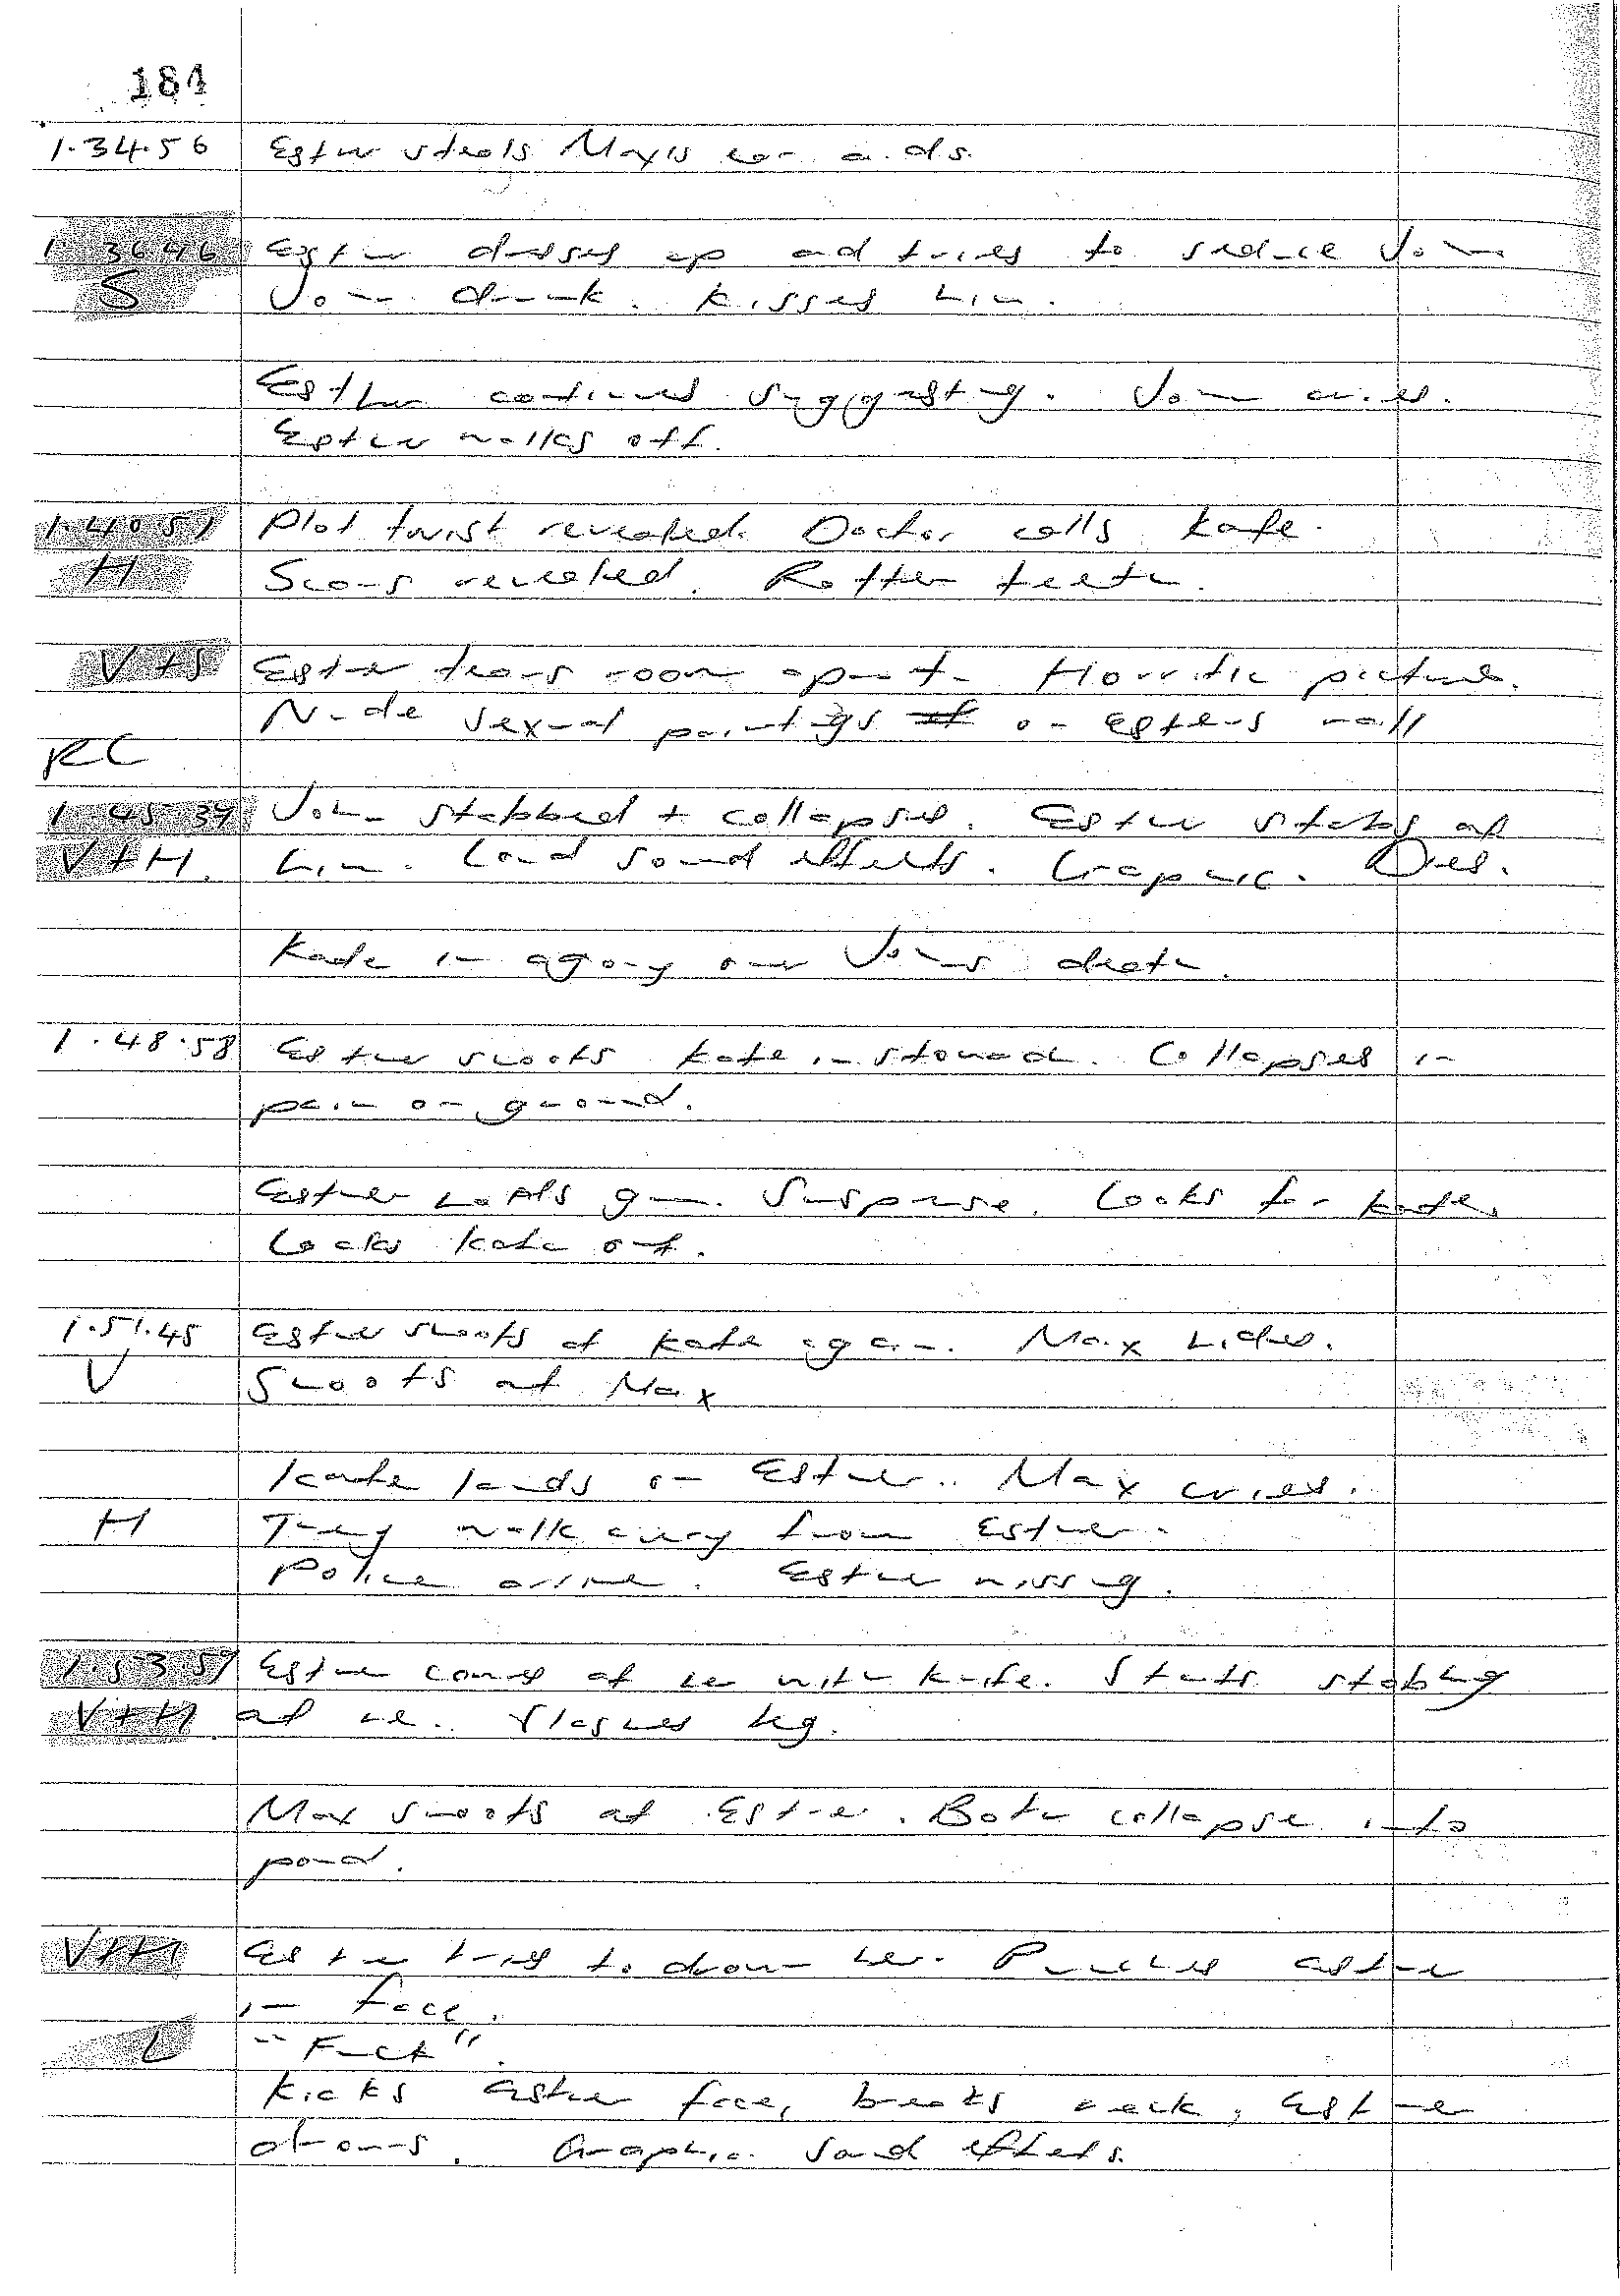 184
1.34.56 Esther steals Max's
1.36.46 Esther dresses up and tries to seduce John
S John drunk. Kisses him.
Esther continues suggesting. John cries.
Esther walks off.
1.40.51 Plot twist revealed. Doctor calls Kate.
H Scars revealed. Rotten teeth.
V+S Esther tears room apart. Horrific pictures.
Nude sexual paintings on Esthers wall
RC
1.45.39 John stabbed + collapses. Esther stabs at
V+H. him. Loud sound effects. Graphic. Dies.
Kate in agony over Johns death.
1.48.58 Esther shoots Kate in stomach. Collapses in
pain on ground.
Esther loads gun. Suspense. Looks for Kate.
Locks Kate out.
1.51.45 Esther shoots at Kate again. Max hides.
V Shoots at Max
Kate lands on Esther. Max cries.
H They walk away from Esther.
Police arrive. Esther missing.
1.53.59 Esther comes at her with knife. Starts stabbing
V+H at her. Slashes leg.
Max shoots at Esther. Both collapse into
pond.
V+H Esther tries to drown her. Punches Esther
in face.
L "Fuck".
Kicks Esther face, breaks neck, Esther
drowns. Graphic sound effects.